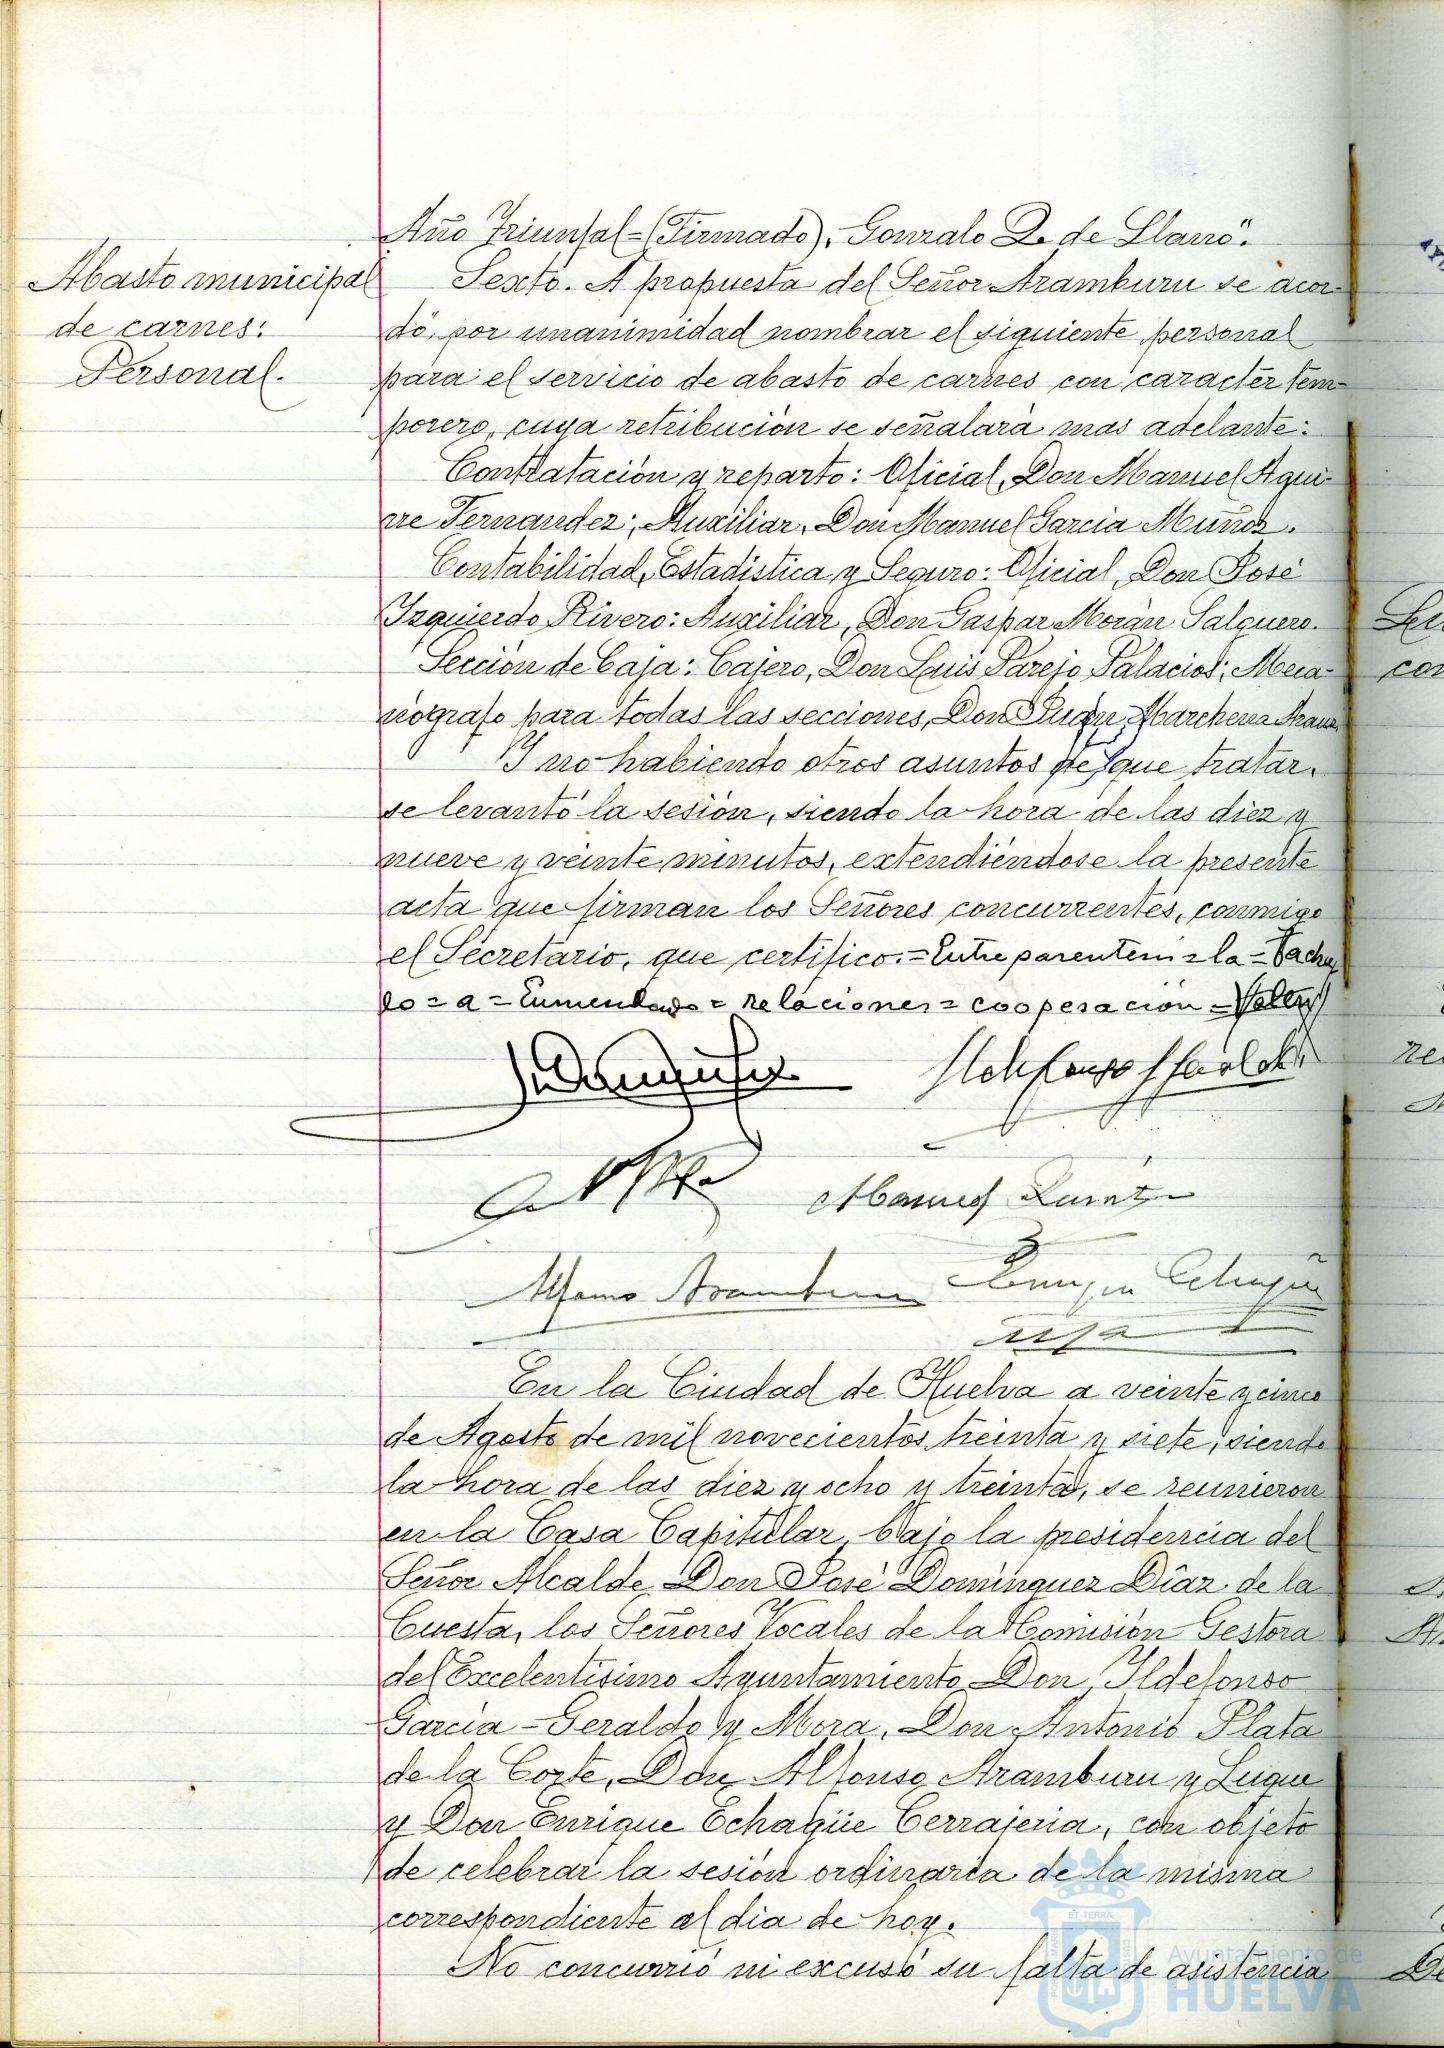 Año Triunfal=(Firmado), Gonzalo Q. de Llano".
Abasto municipal
de carnes:
Personal.
Sexto. A propuesta del Señor Aramburu se acor-
dó, por unanimidad nombrar el siguiente personal
para el servicio de abasto de carnes con caracter tem-
porero, cuya retribución se señalará mas adelante:
Contratación y reparto: Oficial, Don Manuel Agui-
rre Fernandez; Auxiliar, Don Manuel Garcia Muñoz.
Contabilidad, Estadística y Seguro: Oficial, Don José
Izquierdo Rivero: Auxiliar, Don Gaspar Morán Salguero.
Sección de Caja: Cajero, Don Luis Parejo Palacios; Meca-
nógrafo para todas las secciones, Don Juan Marchena
Y no habiendo otros asuntos de que tratar,
se levantó la sesión, siendo la hora de las diez y
nueve y veinte minutos, extendiéndose la presente
acta que firman los Señores concurrentes, conmigo
el Secretario, que certifico.=Entre parentesis=la=Tacha
do=a=Enmendado=relaciones=cooperacion=Valen
Manuel
Alfonso Aramburu Enrique Echagüe
En la Ciudad de Huelva a veinte y cinco
de Agosto de mil novecientos treinta y siete, siendo
la hora de las diez y ocho y treinta, se reunieron
en la Casa Capitular, bajo la presidencia del
Señor Alcalde, Don José Dominguez Díaz de la
Cuesta, los Señores Vocales de la Comisión Gestora
del Excelentísimo Ayuntamiento Don Ildefonso
Garcia-Geraldo y Mora, Don Antonio Plata
de la Corte, Don Alfonso Aramburu y Luque
y Don Enrique Echagüe Cerrajeria, con objeto
de celebrar la sesión ordinaria de la misma
correspondiente al dia de hoy.
No concurrió ni excusó su falta de asistencia
Ayuntamiento de
HUELVA